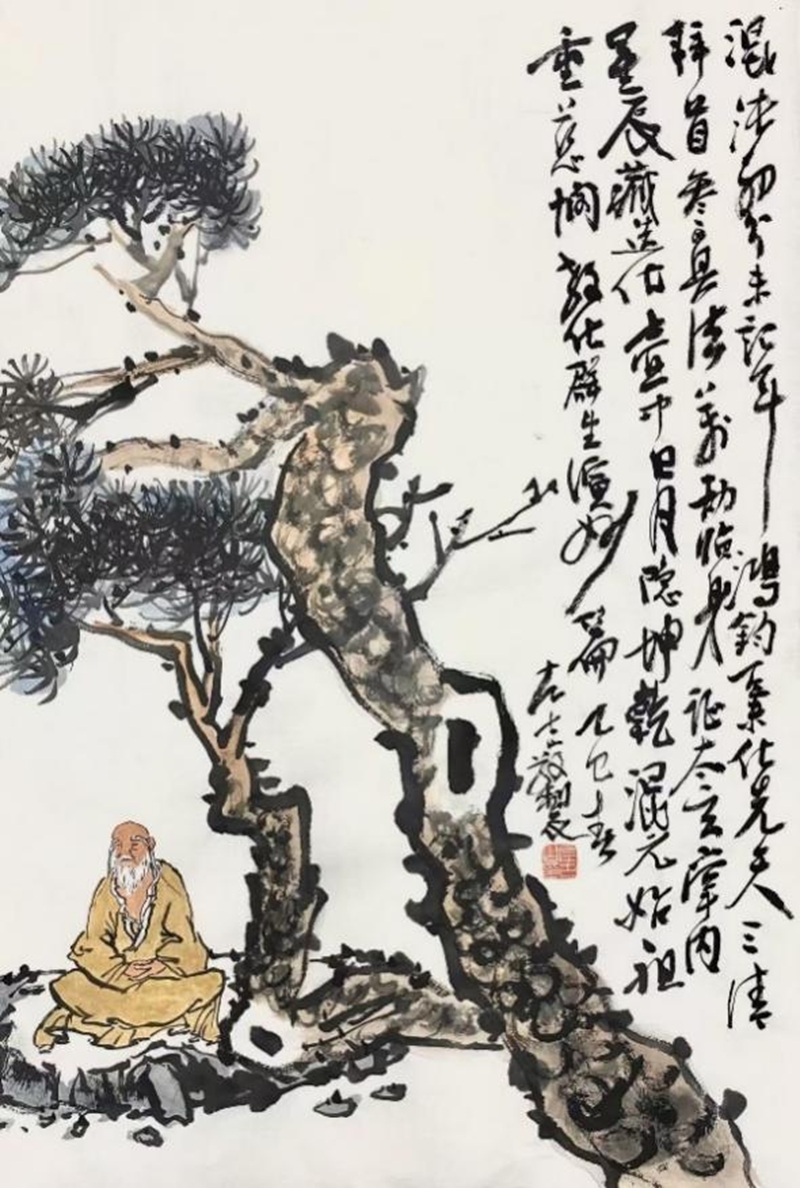 混沌初分未記年鴻鈞一氣化先天三清
拜首參真法萬劫臨身證太玄掌內
星辰藏造化壺中日月隱坤乾混元始祖
重慈憫教化群生演妙篇乙巳春